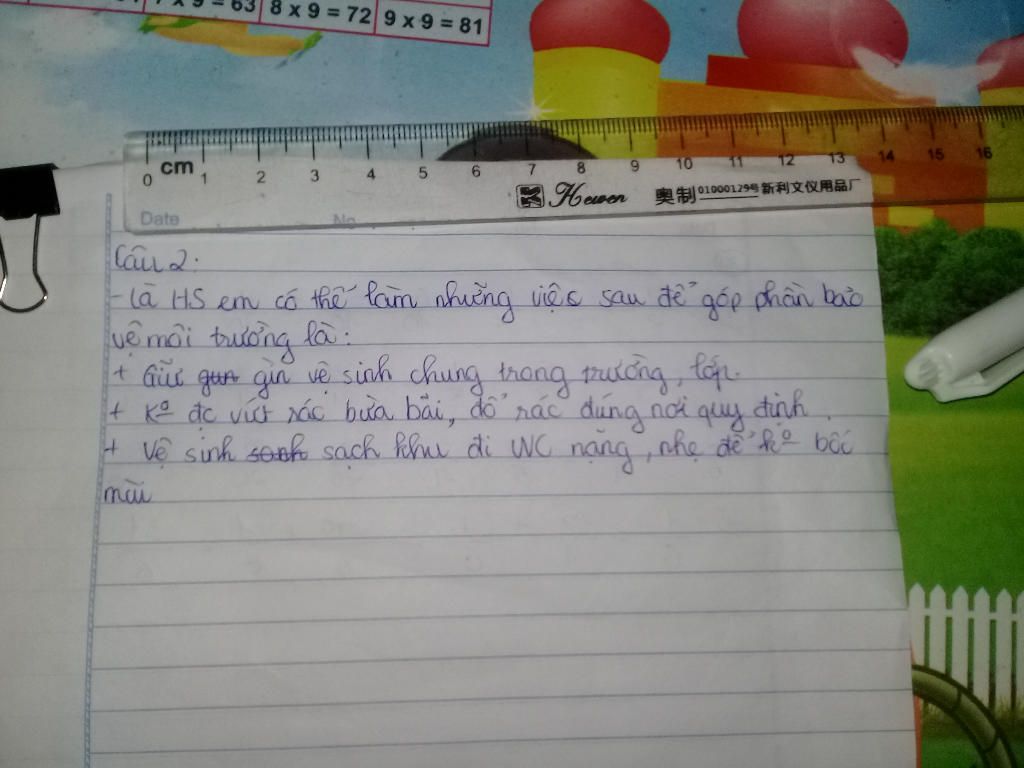 7 x 9 = 63 8 x 9 = 72 9 x 9 = 81
cm
0 1 2 3 4 5 6 7 8 9 10 11 12 13 14 15 16
Hewen 奥制 01000129号 新利文仪用品厂
Date No
Câu 2:
- Là HS em có thể làm những việc sau để góp phần bảo
vệ môi trường là:
+ Giữ gìn vệ sinh chung trong trường, lớp.
+ Kº đc vứt rác bừa bãi, đổ rác đúng nơi quy định.
+ Vệ sinh sạch khu đi WC nặng, nhẹ để kº bốc
mùi